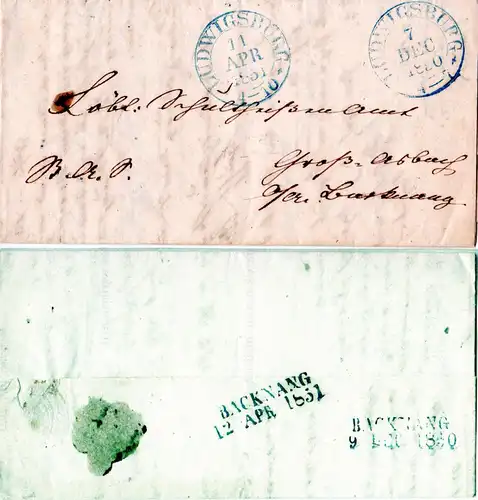 LUDWIGSBURG
11
APR
1851
LUDWIGSBURG
7
DEC
1850
Löbl. Schultheißenamt
Groß-Asbach
Backnang
BACKNANG
12 APR 1851
BACKNANG
9 DEC 1850